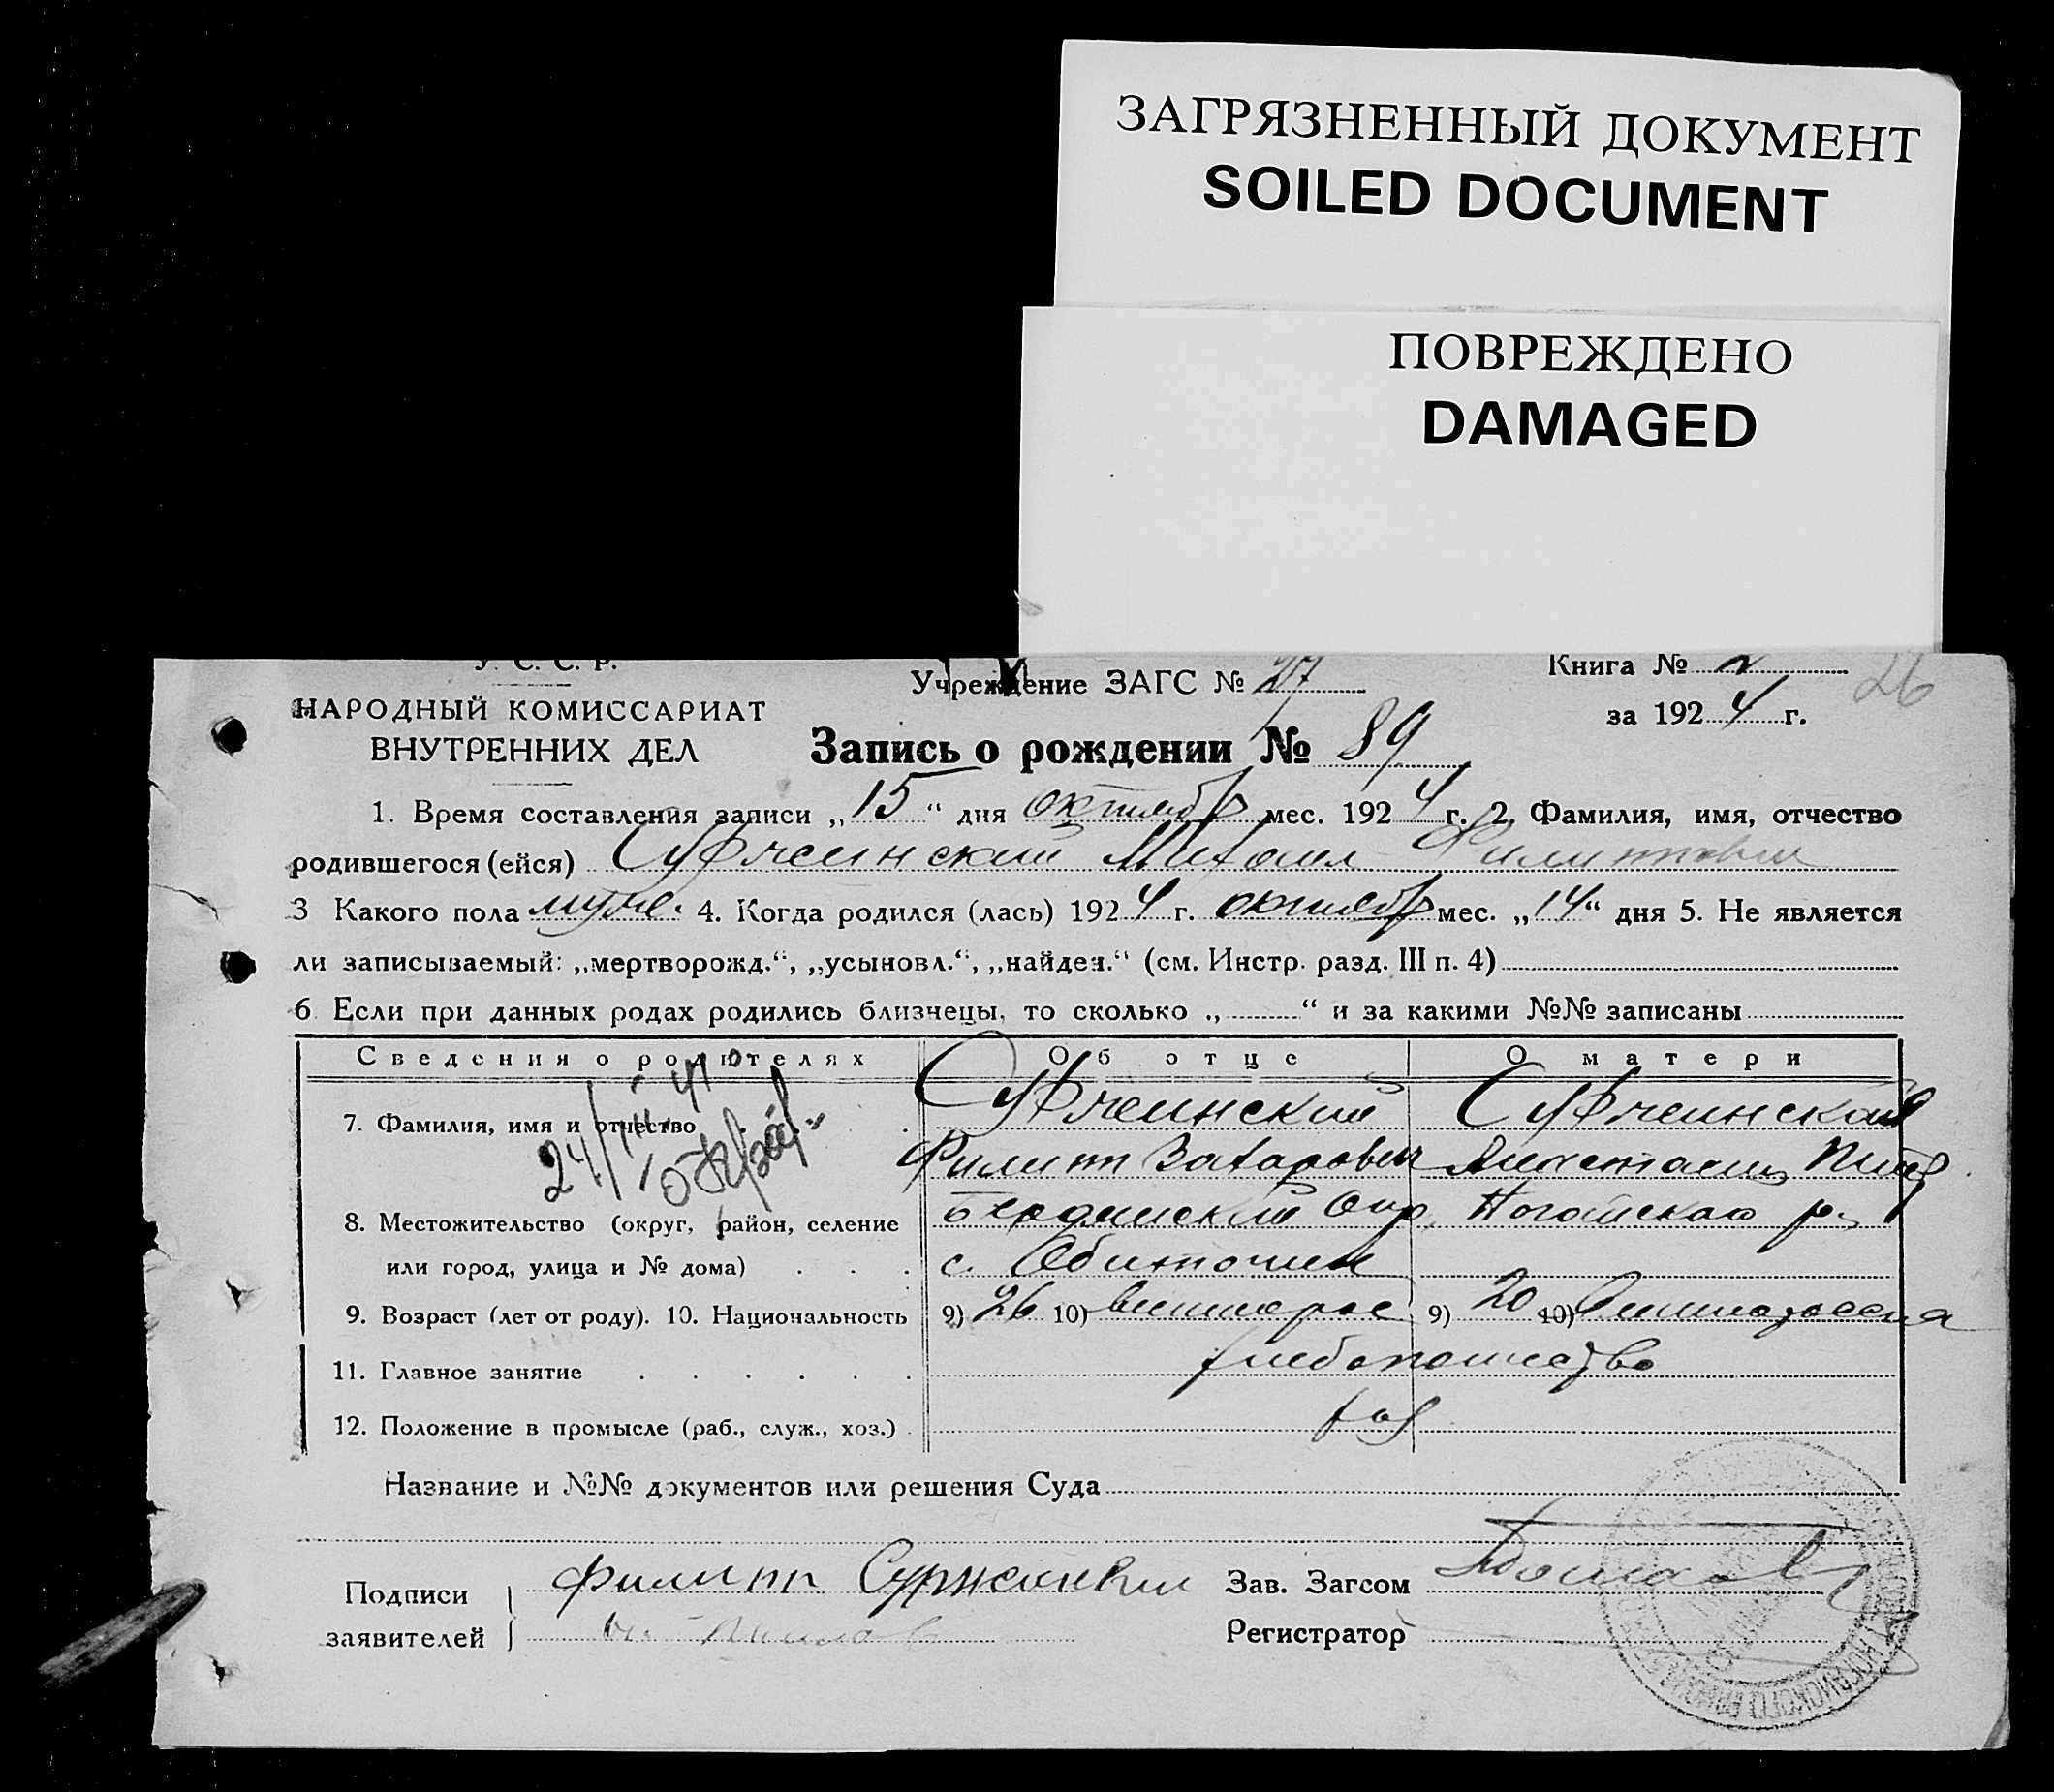 ЗАГРЯЗНЕННЫЙ ДОКУМЕНТ
SOILED DOCUMENT
ПОВРЕЖДЕНО
DAMAGED
У. С. С. Р.
Учреждение ЗАГС № 27
Книга № 2
26
НАРОДНЫЙ КОМИССАРИАТ
за 1924 г.
ВНУТРЕННИХ ДЕЛ
Запись о рождении № 89
1. Время составления записи „15“ дня октябр мес. 1924 г. 2. Фамилия, имя, отчество
родившегося (ейся) Михаил Филиппович
3 Какого пола муж. 4. Когда родился (лась) 1924 г. октябр мес. „14“ дня 5. Не является
ли записываемый: „мертворожд.“, „усыновл.“, „найден.“ (см. Инстр. разд. III п. 4)
6 Если при данных родах родились близнецы, то сколько „ “ и за какими №№ записаны
Сведения о родителях Об отце О матери
7. Фамилия, имя и отчество
Филипп Захарович Анастасия
8. Местожительство (округ, район, селение Бердянский Окр. Ногайского р.
или город, улица и № дома) с. Обиточни
9. Возраст (лет от роду). 10. Национальность 9) 26 10) 9) 20 10)
11. Главное занятие хлебопашество
12. Положение в промысле (раб., служ., хоз.) хоз
Название и №№ документов или решения Суда
Подписи Филипп Зав. Загсом
заявителей Регистратор